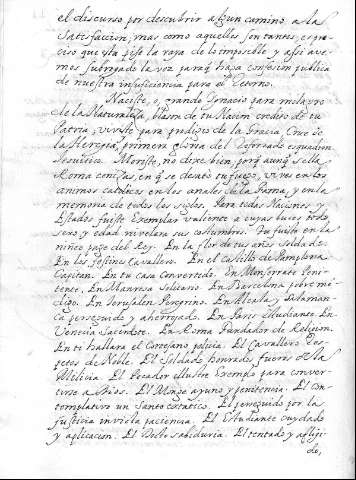 el discurso por descubrir algun camino a la
satisfaccion, mas como aquellos son tantos, es pre-
ciso que esta pase la raya de lo imposible y assi ave-
mos subrogado la voz paraq haga confesion publica
de nuestra insuficiencia para el retorno.
Naciste, o grande Ygnacio para milagro
de la Naturaleza, blason de tu Nacion credito de tu
Patria, viviste para prodigio de la Gracia, Cruz de
la Heregia, primera gloria del esforzado esquadron
Jesuitico. Moriste, no dixe bien, porq aunq sella
Roma cenizas, en q se desató tu fuego, vives en los
animos catolicos en los anales de la Fama, y en la
memoria de todos los siglos. Para todas Naciones y
Estados fuiste Exemplar valiente a cuyas luces todo
sexo, y edad nivelara sus costumbres. Tu fuiste en la
niñez page del Rey. En la flor de tus años Soldado.
En los festines Cavallero. En el castillo de Pamplona
Capitan. En tu casa convertido. En Monserrate Peni-
tente. En Manresa solitario. En Barcelona pobre mē-
digo. En Jerusalen Peregrino. En Alcala y Salaman-
ca perseguido y aherrojado. En Paris Estudiante. En
Venecia Sacerdote. En Roma Fundador de Religion.
En ti hallara el Cortesano policia. El Cavallero Res-
petos de Noble. El Soldado honrados fueros de la
Milicia. El Pecador illustre Exemplo para conver-
tirse a Dios. El Monge ayuno y penitencia. El con-
templativo un Santo extatico. El perseguido por la
justicia invicta paciencia. El Estudiante cuydado
y aplicacion. El Docto sabiduria. El tentado y afligi-
do,